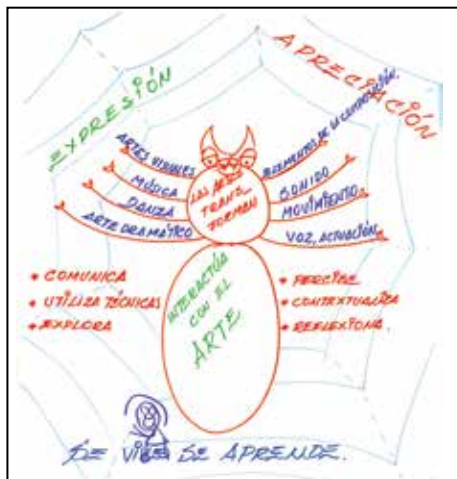 EXPRESIÓN
APRECIACIÓN
ARTES VISUALES
MÚSICA
DANZA
ARTE DRAMÁTICO
LAS ARTES
TRANS-
FORMAN
ELEMENTOS DE LA COMPOSICIÓN.
SONIDO
MOVIMIENTO
VOZ, ACTUACIÓN
+ COMUNICA
+ UTILIZA TÉCNICAS
+ EXPLORA
INTERACTÚA
CON EL
ARTE
+ PERCIBE
+ CONTEXTUALIZA
+ REFLEXIONA.
SE VIVE SE APRENDE.